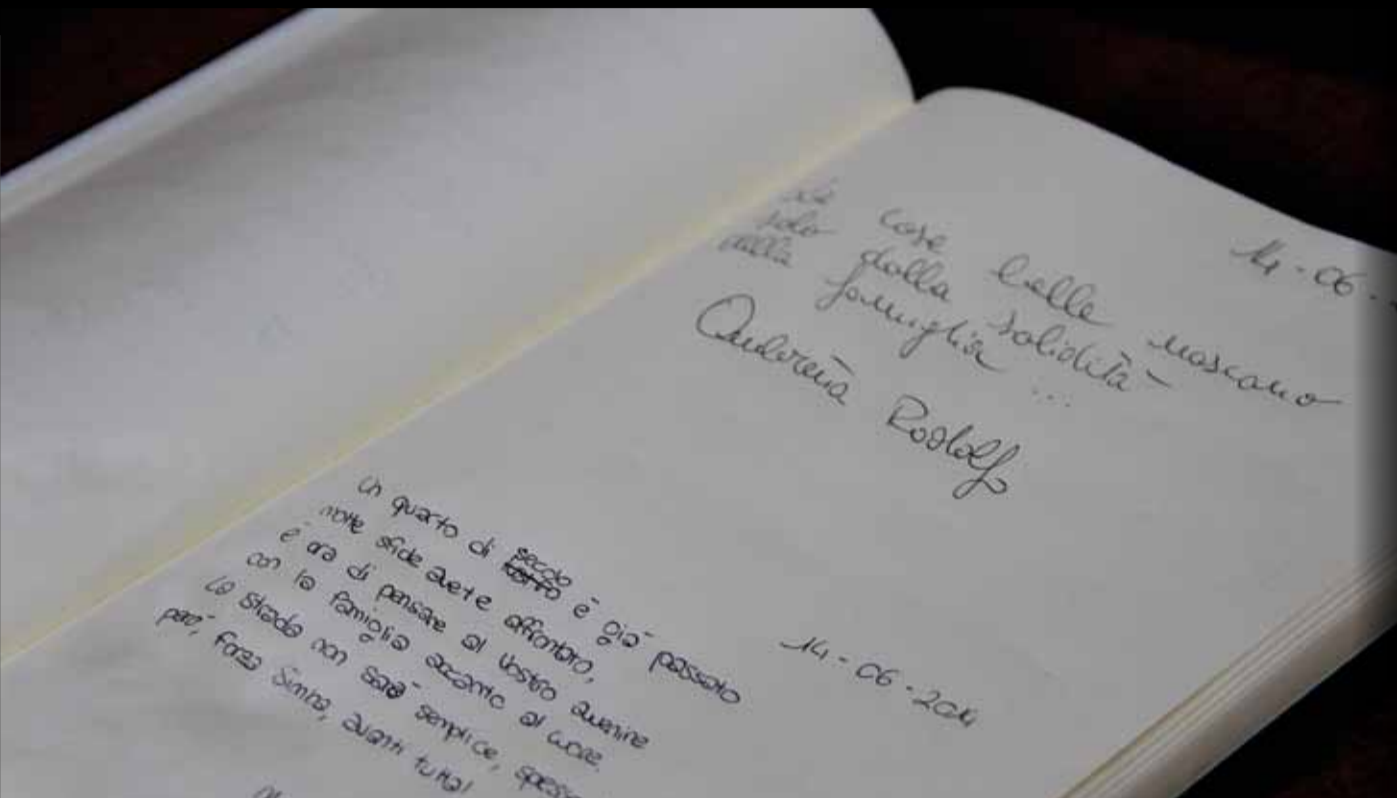 14-06-
Le cose belle nascono
solo dalla solidità
della famiglia ...
Rodolfo
14-06-2014
Un quarto di secolo è già passato
molte sfide avete affrontato,
è ora di pensare al vostro avvenire
con la famiglia accanto al cuore.
La strada non sarà semplice,
però, forza Simba, avanti tutta!